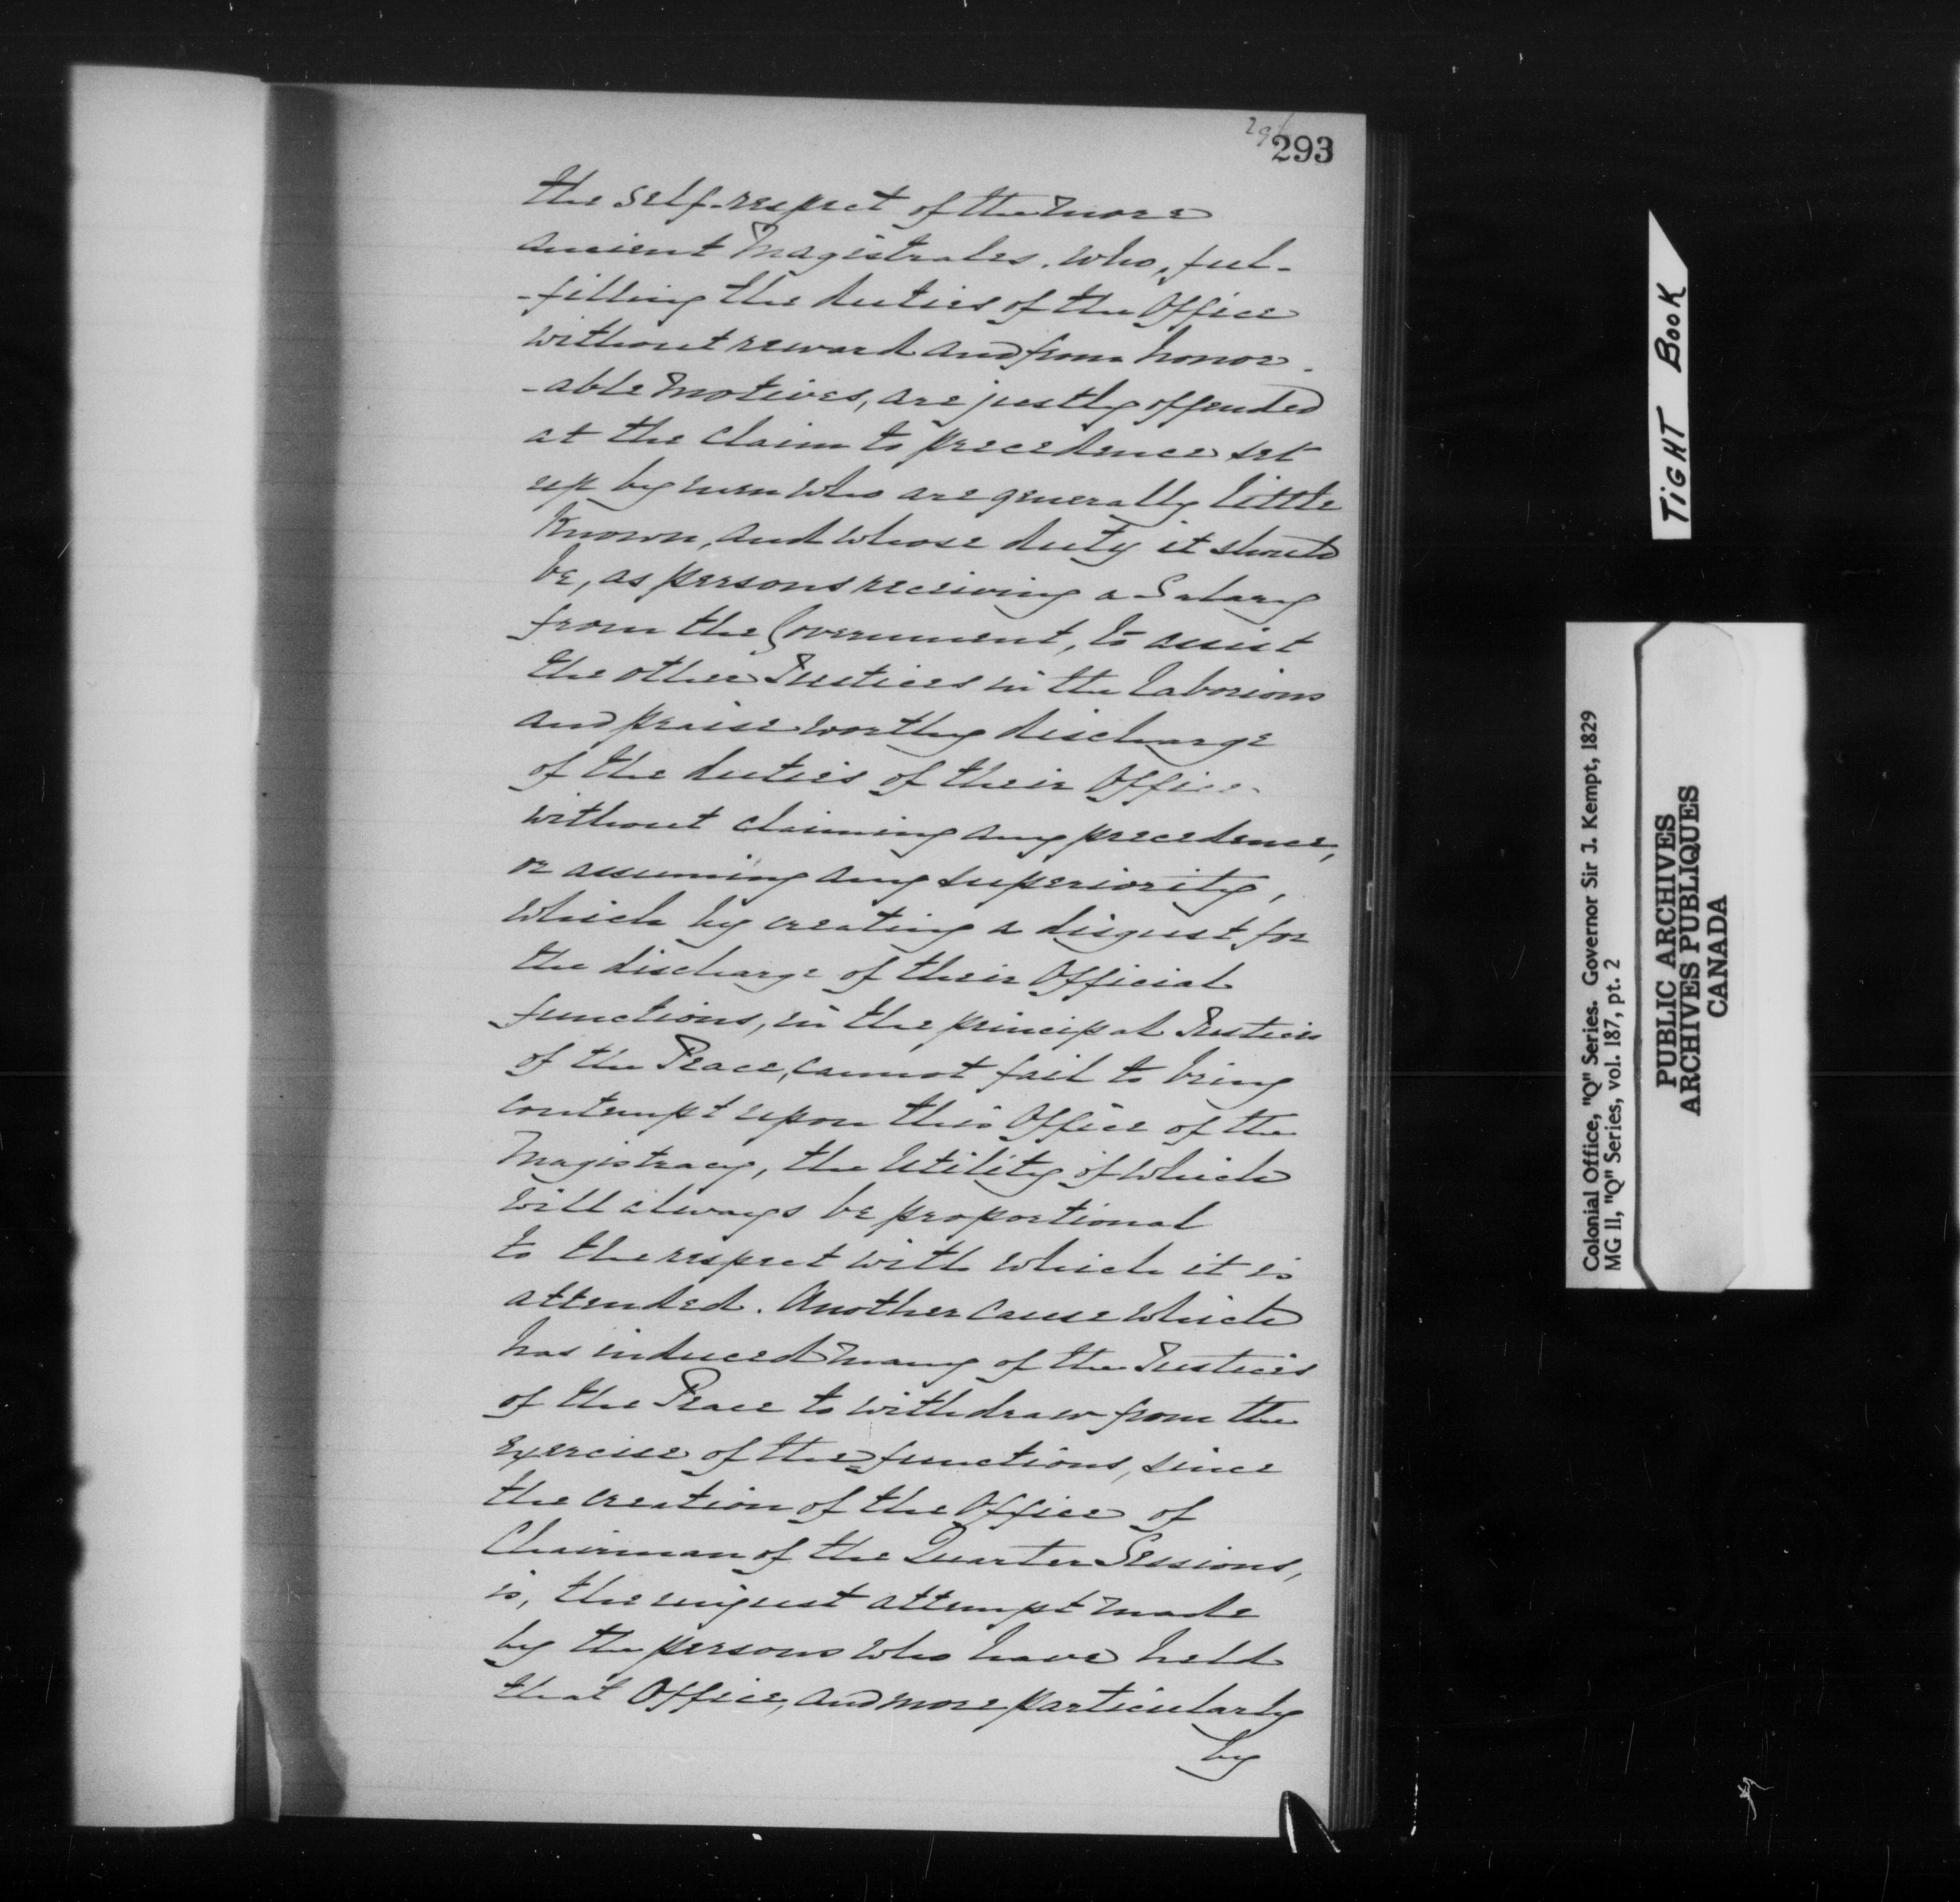 293
the self-respect of the more
ancient Magistrates. who, ful-
-filling the duties of the Office
without reward and from honor-
-able motives, are justly offended
at the claim to precedence set
up by men who are generally little
known, and whose duty it should
be, as persons receiving a Salary
from the Government, to assist
the other Justices in the laborious
and praiseworthy discharge
of the duties of their Office
without claiming any precedence,
or assuming any superiority,
which by creating a disgust for
the discharge of their Official
functions, in the principal Justices
of the Peace, cannot fail to bring
contempt upon this Office of the
Magistracy, the Utility of which
will always be proportional
to the respect with which it is
attended. Another cause which
has induced many of the Justices
of the Peace to withdraw from the
exercise of the functions, since
the creation of the Office of
Chairman of the Quarter Sessions,
is, the unjust attempt made
by the persons who have held
that Office, and more particularly
by
TIGHT BOOK
Colonial Office, "Q" Series. Governor Sir J. Kempt, 1829
MG 11, "Q" Series, vol. 187, pt. 2
PUBLIC ARCHIVES
ARCHIVES PUBLIQUES
CANADA